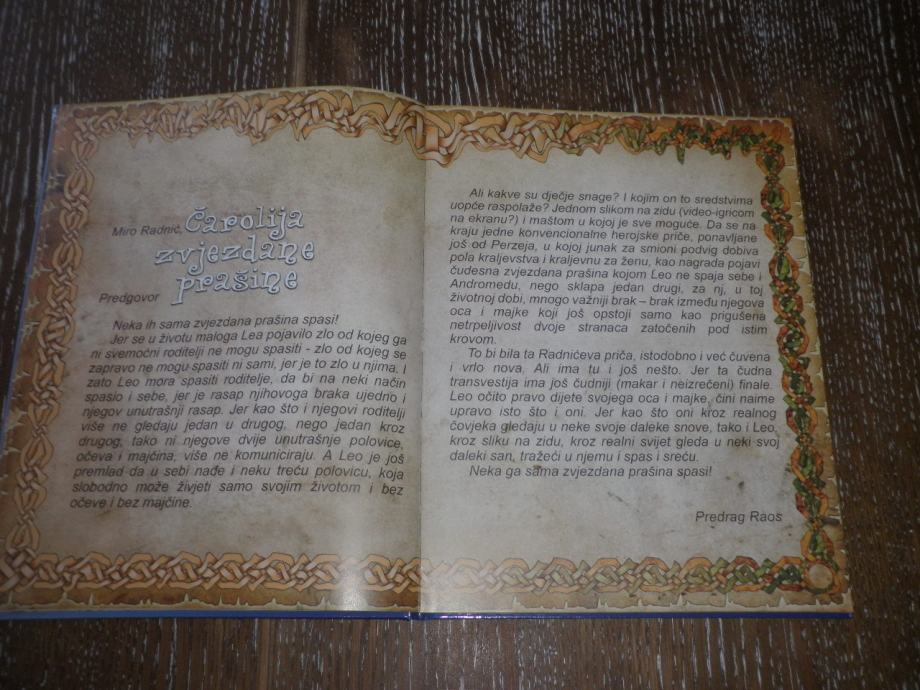 Miro Radnić, Čarolija
zvjezdane
prašine
Predgovor
Neka ih sama zvjezdana prašina spasi!
Jer se u životu maloga Lea pojavilo zlo od kojeg ga
ni svemoćni roditelji ne mogu spasiti - zlo od kojeg se
zapravo ne mogu spasiti ni sami, jer je to zlo u njima. I
zato Leo mora spasiti roditelje, da bi na neki način
spasio i sebe, jer je rasap njihovoga braka ujedno i
njegov unutrašnji rasap. Jer kao što i njegovi roditelji
više ne gledaju jedan u drugog, nego jedan kroz
drugog, tako ni njegove dvije unutrašnje polovice,
očeva i majčina, više ne komuniciraju. A Leo je još
premlad da u sebi nađe i neku treću polovicu, koja
slobodno može živjeti samo svojim životom i bez
očeve i bez majčine.
Ali kakve su dječje snage? I kojim on to sredstvima
uopće raspolaže? Jednom slikom na zidu (video-igricom
na ekranu?) i maštom u kojoj je sve moguće. Da se na
kraju jedne konvencionalne herojske priče, ponavljane
još od Perzeja, u kojoj junak za smioni podvig dobiva
pola kraljevstva i kraljevnu za ženu, kao nagrada pojavi
čudesna zvjezdana prašina kojom Leo ne spaja sebe i
Andromedu, nego sklapa jedan drugi, za nj, u toj
životnoj dobi, mnogo važniji brak – brak između njegova
oca i majke koji još opstoji samo kao prigušena
netrpeljivost dvoje stranaca zatočenih pod istim
krovom.
To bi bila ta Radnićeva priča, istodobno i već čuvena
i vrlo nova. Ali ima tu i još nešto. Jer ta čudna
transvestija ima još čudniji (makar i neizrečeni) finale.
Leo očito pravo dijete svojega oca i majke, čini naime
upravo isto što i oni. Jer kao što oni kroz realnog
čovjeka gledaju u neke svoje daleke snove, tako i Leo,
kroz sliku na zidu, kroz realni svijet gleda u neki svoj
daleki san, tražeći u njemu i spas i sreću.
Neka ga sama zvjezdana prašina spasi!
Predrag Raos